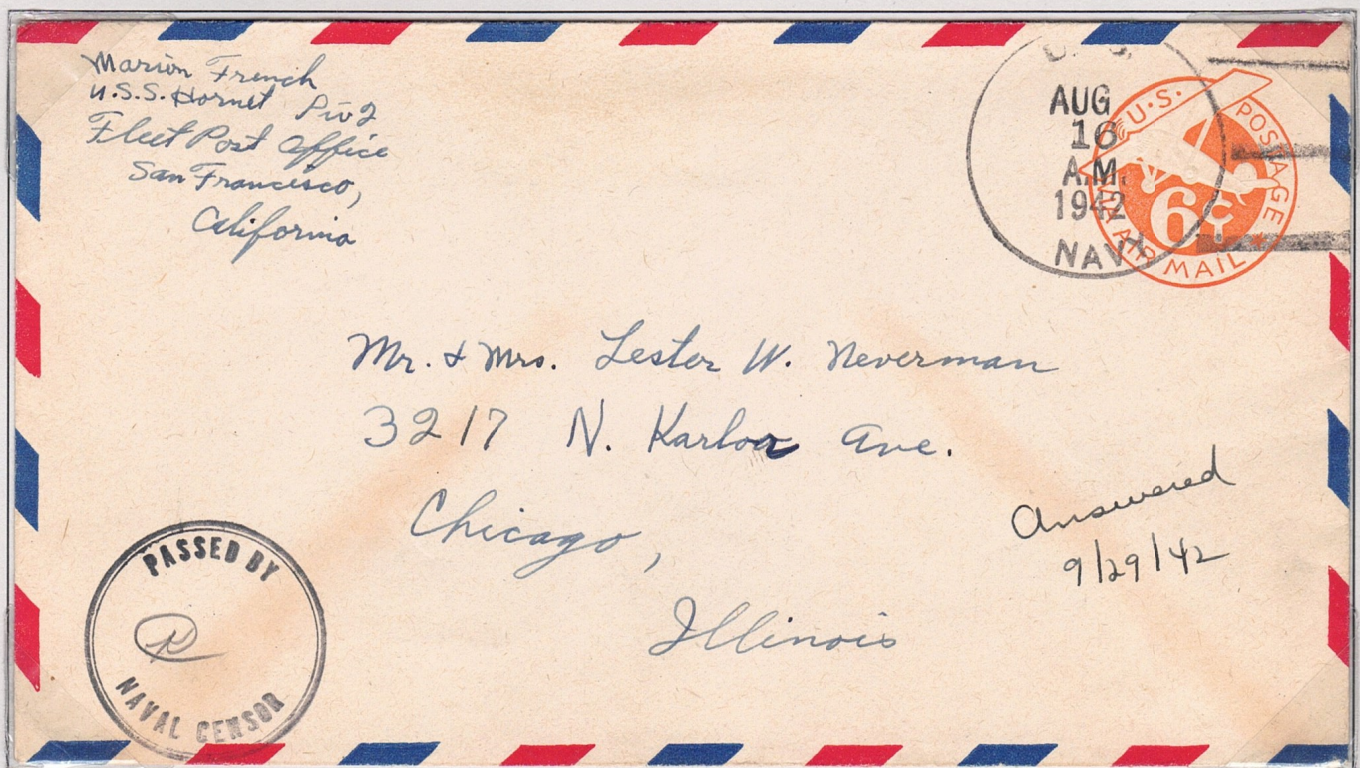 Marion French
U.S.S. Hornet Div 2
Fleet Post Office
San Francisco,
California
U.S.
AUG
16
A.M.
1942
NAVY
U.S. POSTAGE
6¢
VIA AIR MAIL
Mr. & Mrs. Lester W. Neverman
3217 N. Karlov Ave.
Chicago,
Illinois
Answered
9/29/42
PASSED BY
NAVAL CENSOR